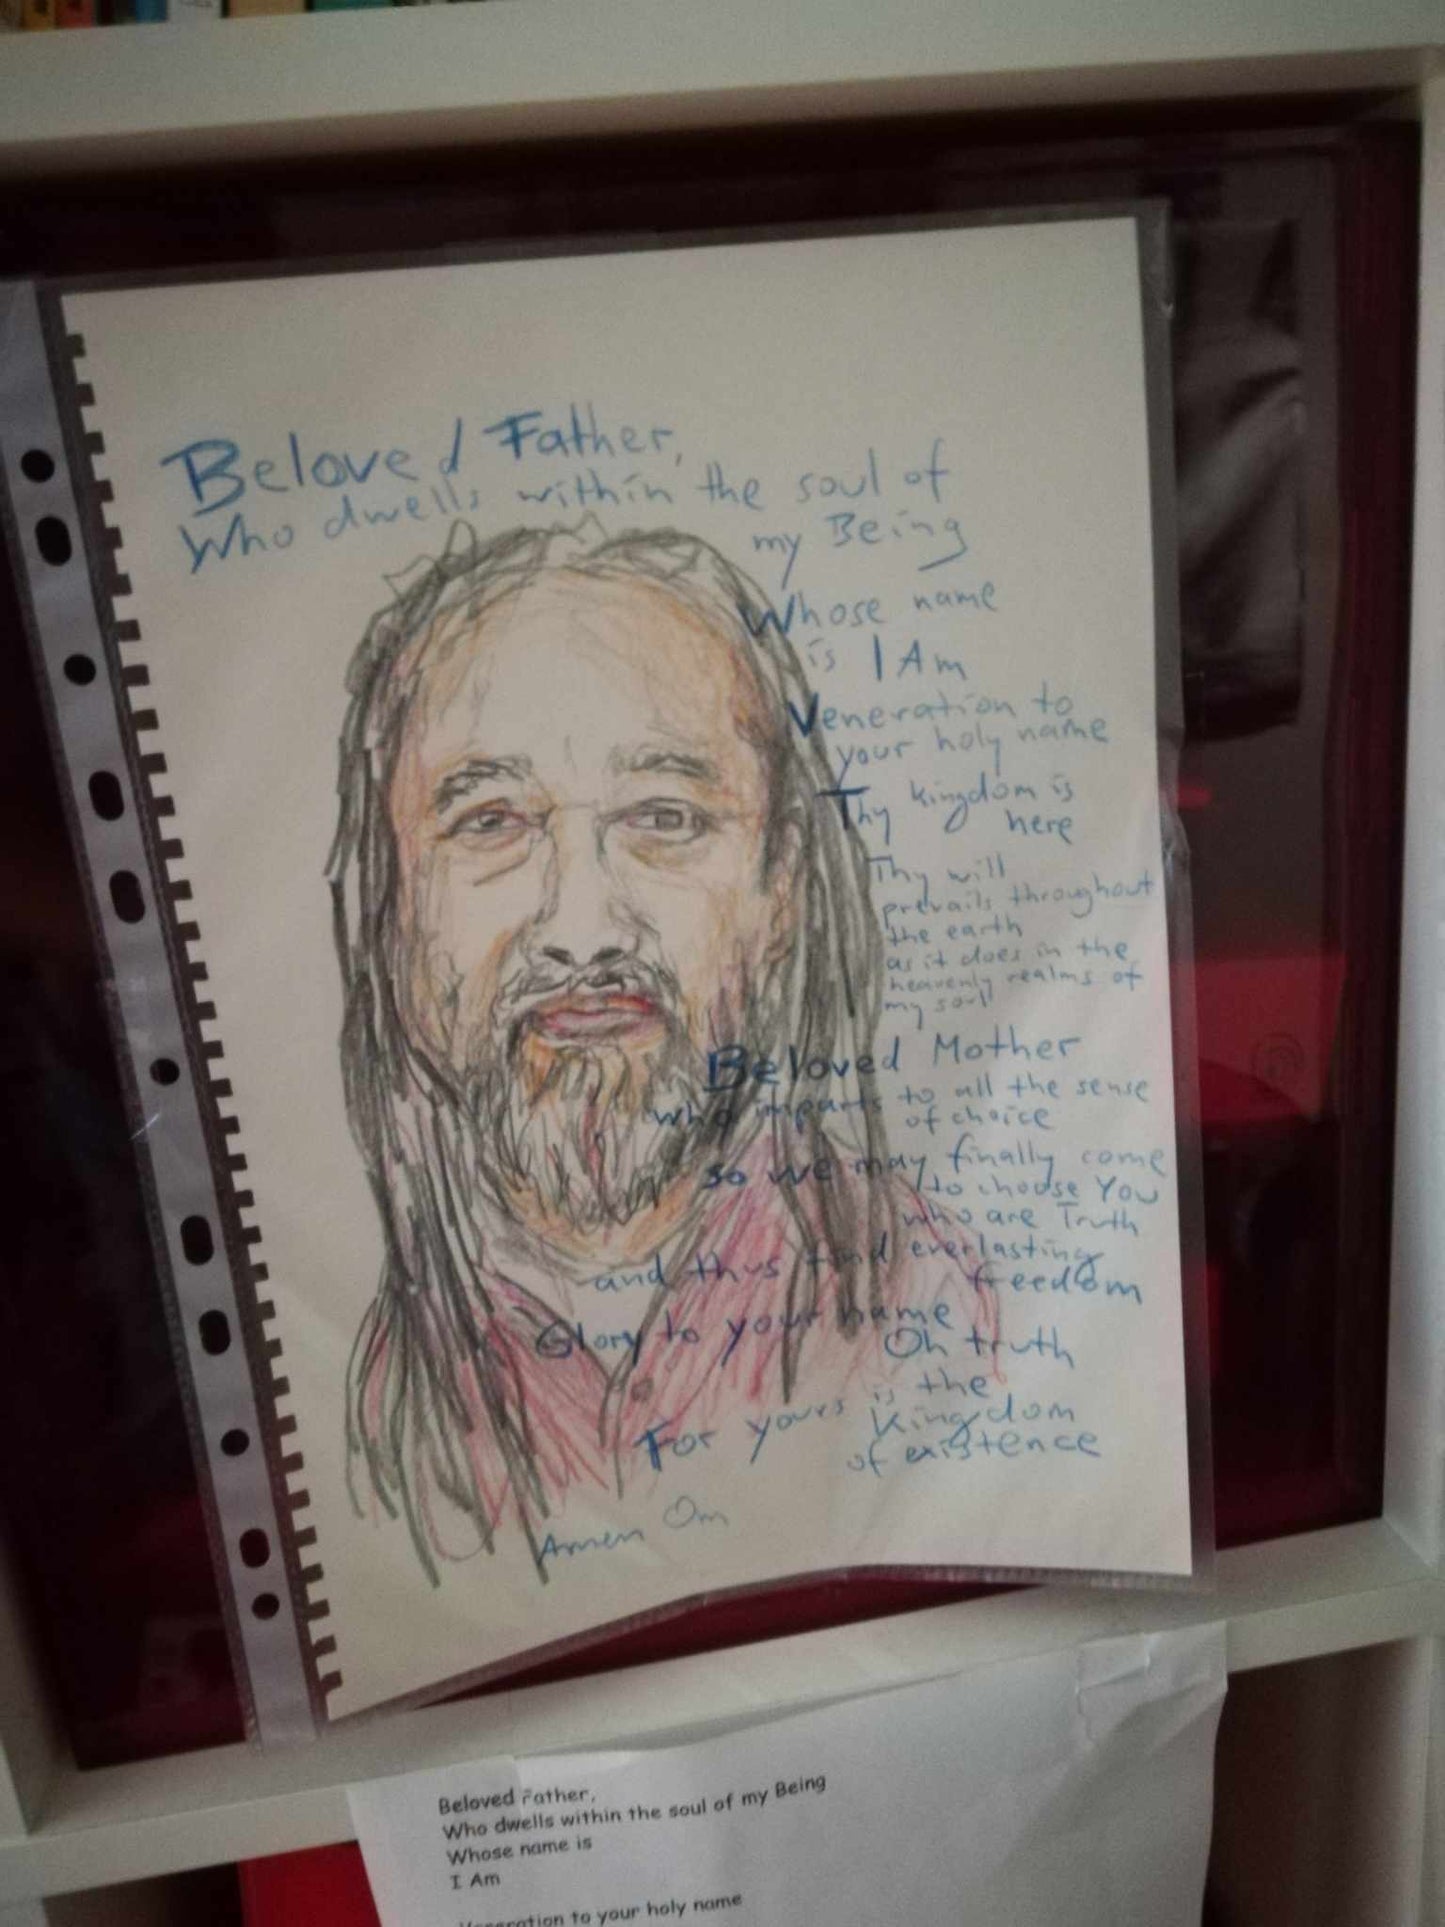 Beloved Father,
Who dwells within the soul of
my Being
Whose name
is I Am
Veneration to
your holy name
Thy kingdom is
here
Thy will
prevails throughout
the earth
as it does in the
heavenly realms of
my soul
Beloved Mother
who imparts to all the sense
of choice
so we may finally come
to choose You
who are Truth
and thus find everlasting
freedom
Glory to your name
Oh truth
For yours is the
Kingdom
of existence
Amen Om
Beloved Father,
Who dwells within the soul of my Being
Whose name is
I Am
Veneration to your holy name